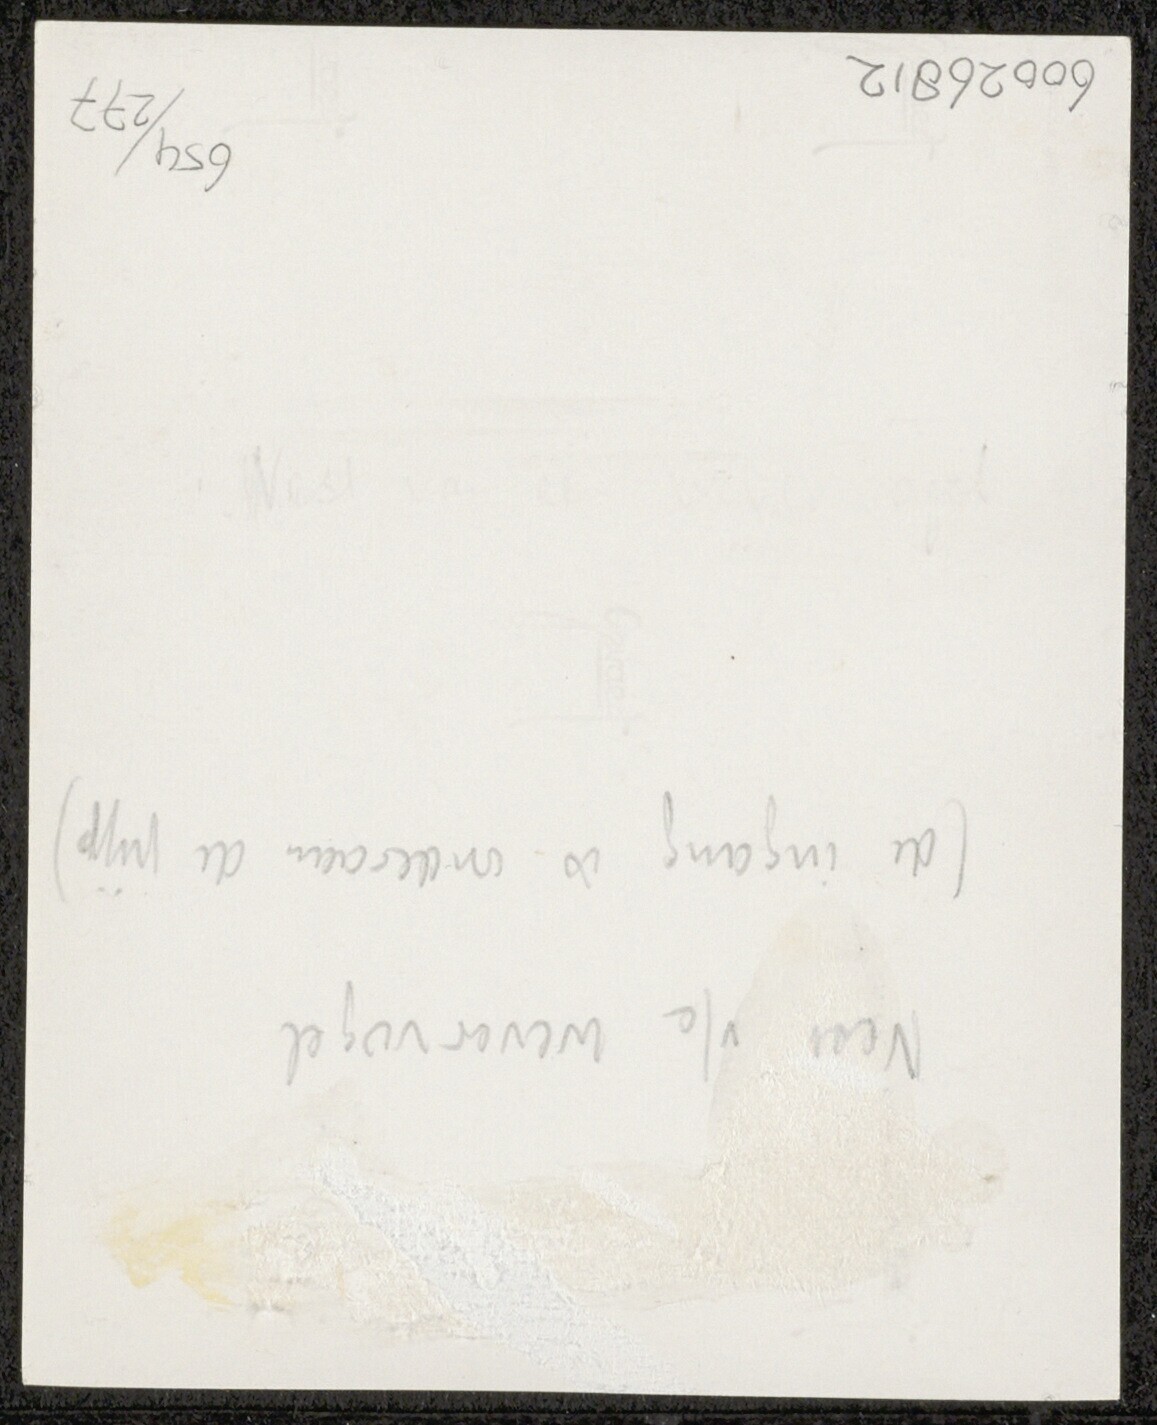 Nest v/e wevervogel
(de ingang is onderaan de pijp)
654/277
60026812